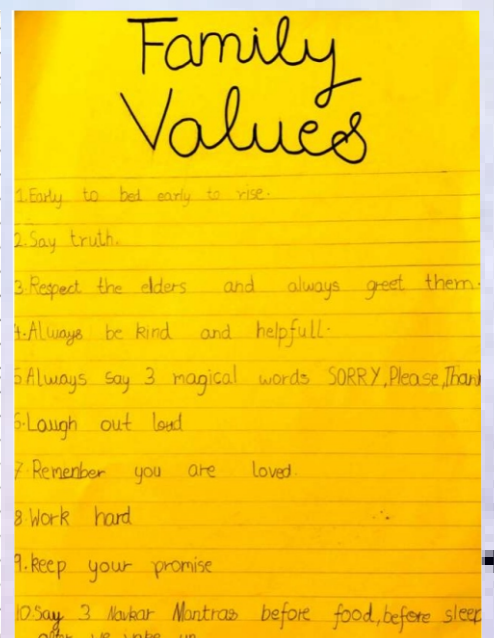 Family
Values
1.Early to bed early to rise.
2.Say truth.
3.Respect the elders and always greet them.
4.Always be kind and helpfull.
5 Always say 3 magical words SORRY,Please,Thank
6.Laugh out loud
7 Remenber you are loved.
8 Work hard
9.keep your promise
10.Say 3 Navkar Mantras before food,before sleep
after we wake up